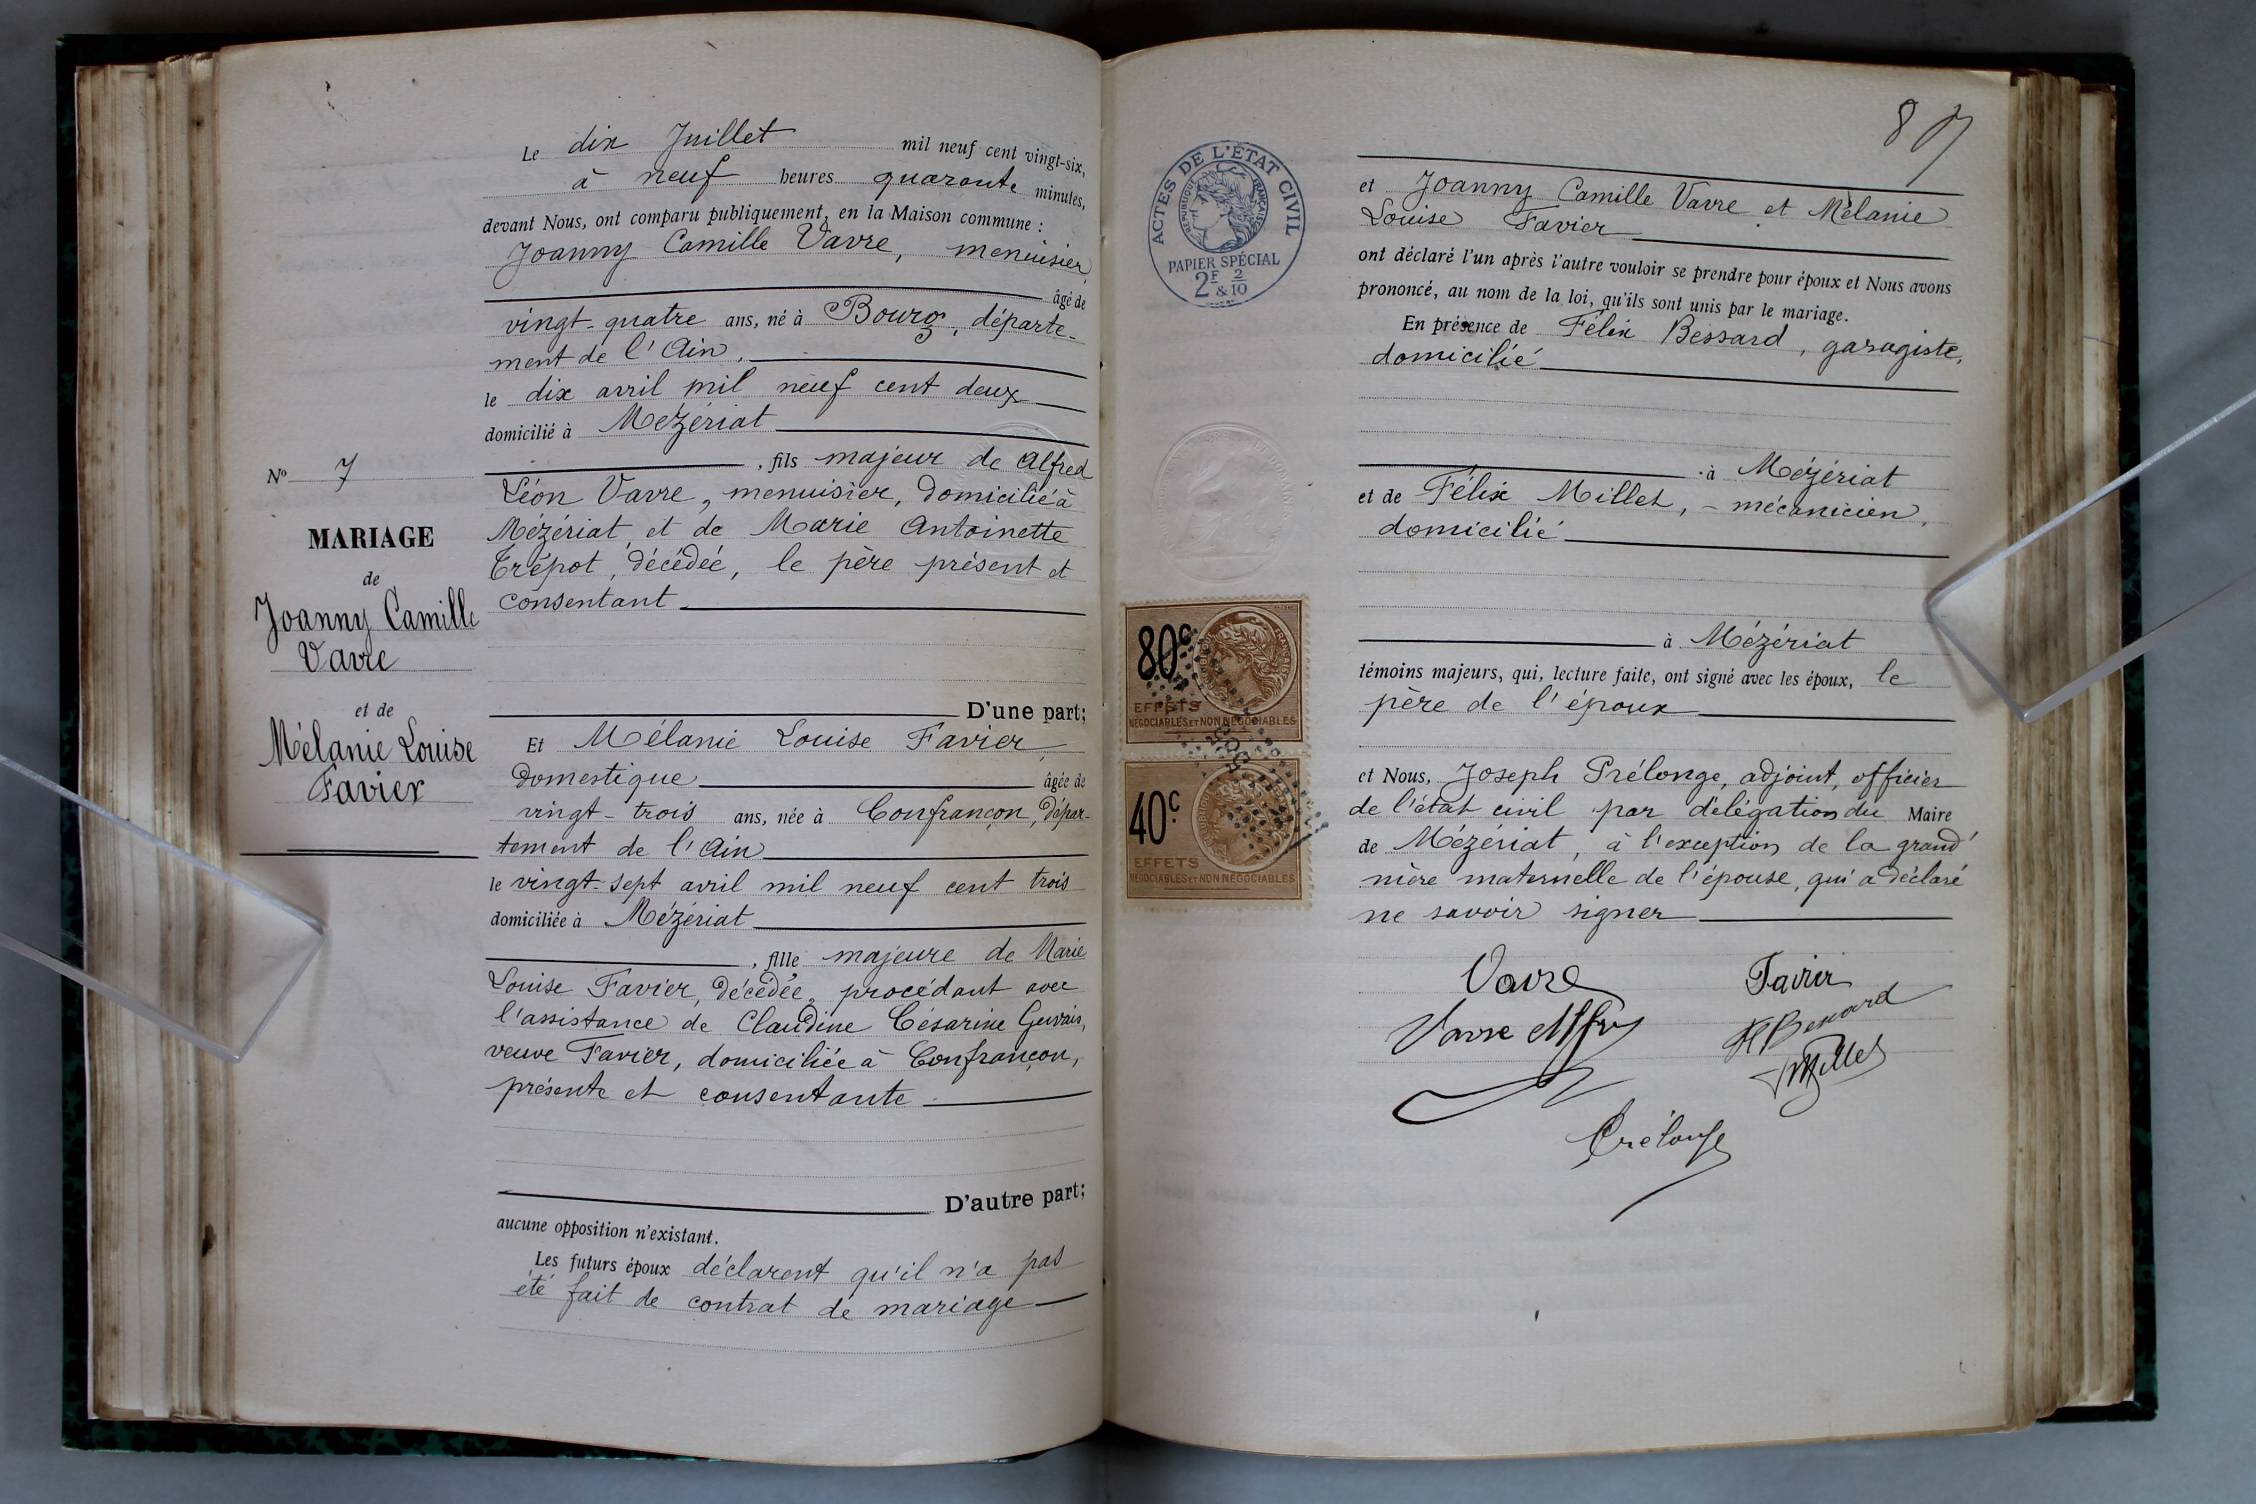 Le dix Juillet mil neuf cent vingt-six,
à neuf heures quarante minutes,
devant Nous, ont comparu publiquement, en la Maison commune :
Joanny Camille Vavre, menuisier,
âgé de
vingt-quatre ans, né à Bourg, départe-
ment de l'Ain,
le dix avril mil neuf cent deux
domicilié à Mézériat
, fils majeur de Alfred
Léon Vavre, menuisier, domicilié à
Mézériat, et de Marie Antoinette
Trépot, décédée, le père présent et
consentant
D'une part;
Et Mélanie Louise Favier,
domestique âgée de
vingt-trois ans, née à Confrançon, dépar-
tement de l'Ain
le vingt-sept avril mil neuf cent trois
domiciliée à Mézériat
, fille majeure de Marie
Louise Favier, décédée, procédant avec
l'assistance de Claudine Césarine Gervais,
veuve Favier, domiciliée à Confrançon,
présente et consentante
D'autre part;
aucune opposition n'existant.
Les futurs époux déclarent qu'il n'a pas
été fait de contrat de mariage
N° 7
MARIAGE
de
Joanny Camille
Vavre
et de
Mélanie Louise
Favier
87
ACTES DE L'ÉTAT CIVIL
RÉPUBLIQUE FRANÇAISE
PAPIER SPÉCIAL
2F & 2/10
80c
EFFETS
NÉGOCIABLES ET NON NÉGOCIABLES
40c
EFFETS
NÉGOCIABLES ET NON NÉGOCIABLES
et Joanny Camille Vavre et Mélanie
Louise Favier
ont déclaré l'un après l'autre vouloir se prendre pour époux et Nous avons
prononcé, au nom de la loi, qu'ils sont unis par le mariage.
En présence de Félix Bessard, garagiste,
domicilié
à Mézériat
et de Félix Millet, - mécanicien,
domicilié
à Mézériat
témoins majeurs, qui, lecture faite, ont signé avec les époux, le
père de l'époux
et Nous, Joseph Prélonge, adjoint, officier
de l'état civil par délégation du Maire
de Mézériat, à l'exception de la grand'
mère maternelle de l'épouse, qui a déclaré
ne savoir signer
Vavre Favier
Vavre Alfred Bessard
Millet
Prélonge